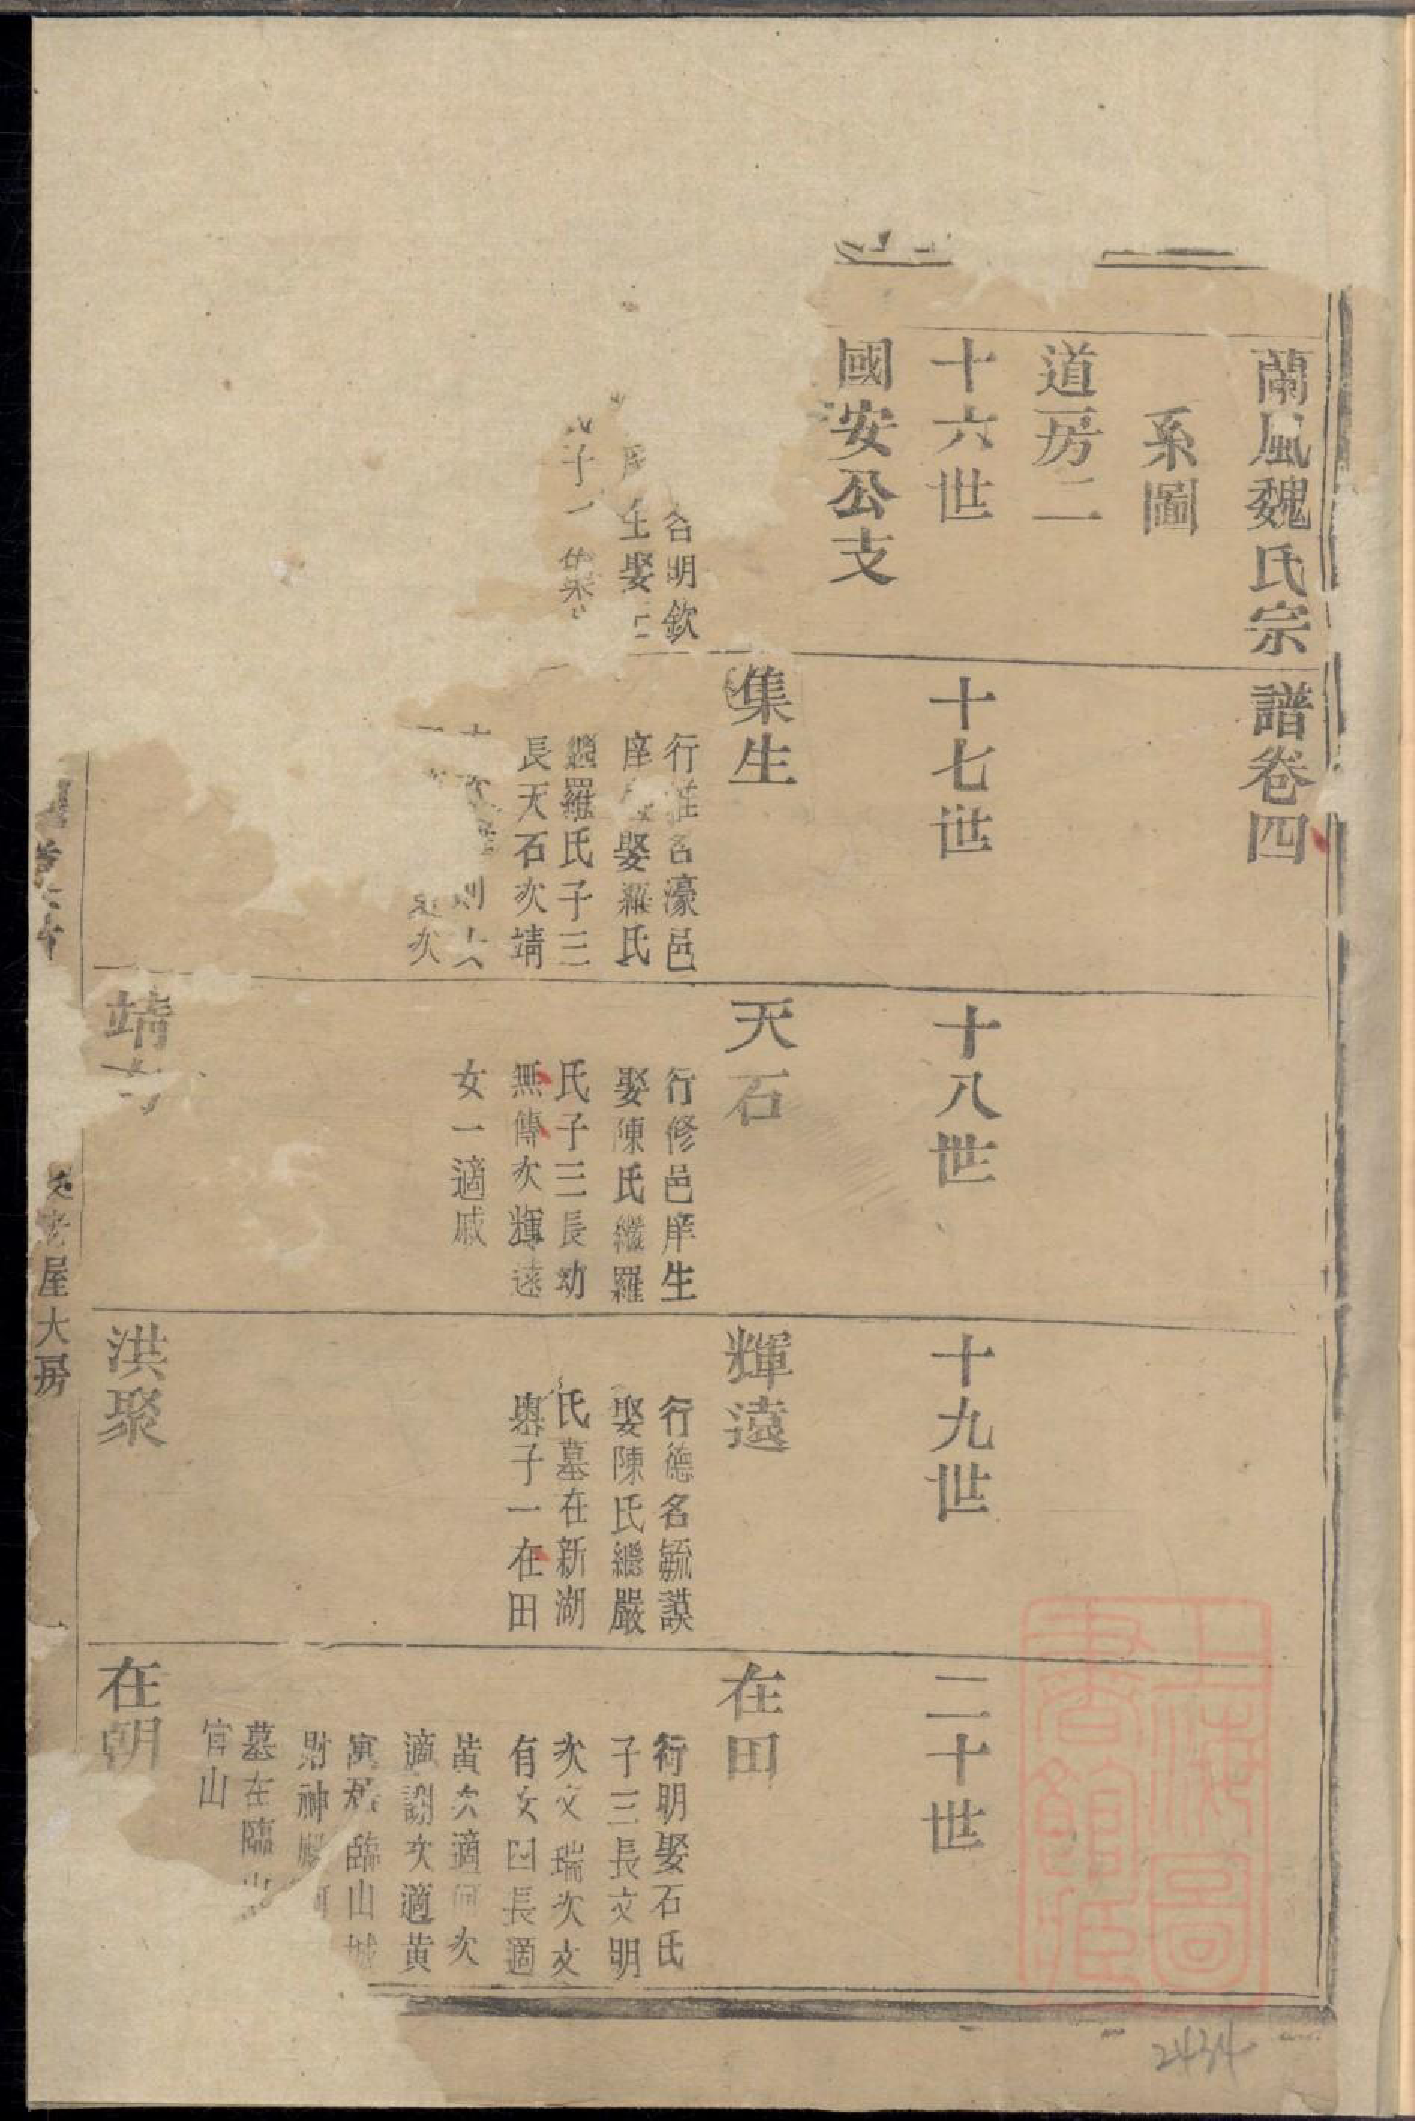 蘭風魏氏宗譜卷四
系圖
道房二
十六世
十七世
十八世
十九世
二十世
國安公支
名明欽
生娶
子一
集生
行 名濠邑
庠 娶羅氏
繼羅氏子三
長天石次靖
次
天石
行修邑庠生
娶陳氏繼羅
氏子三長幼
無傳次輝遠
女一適戚
輝遠
行德名毓謨
娶陳氏繼嚴
氏墓在新湖
嶴子一在田
在田
行明娶石氏
子三長文明
次文瑞次文
有女四長適
黃次適何次
適謝次適黃
寓居臨山城
財神
墓在臨山
官山
靖
洪聚
在朝
老屋大房
上海圖書館藏
2434